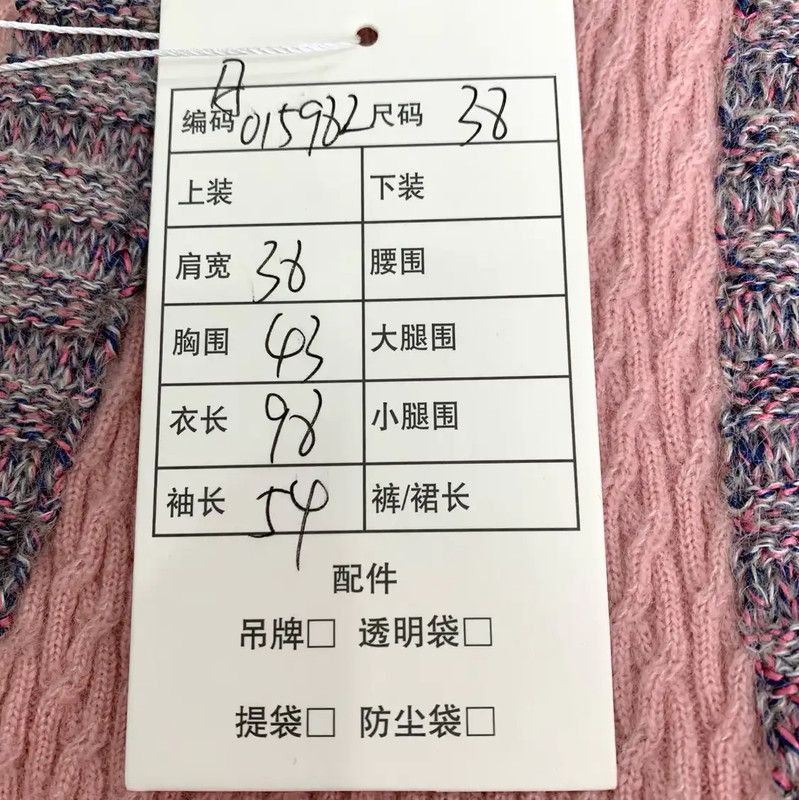 编码 015982 尺码 38
上装 下装
肩宽 38 腰围
胸围 43 大腿围
衣长 98 小腿围
袖长 54 裤/裙长
配件
吊牌□ 透明袋□
提袋□ 防尘袋□